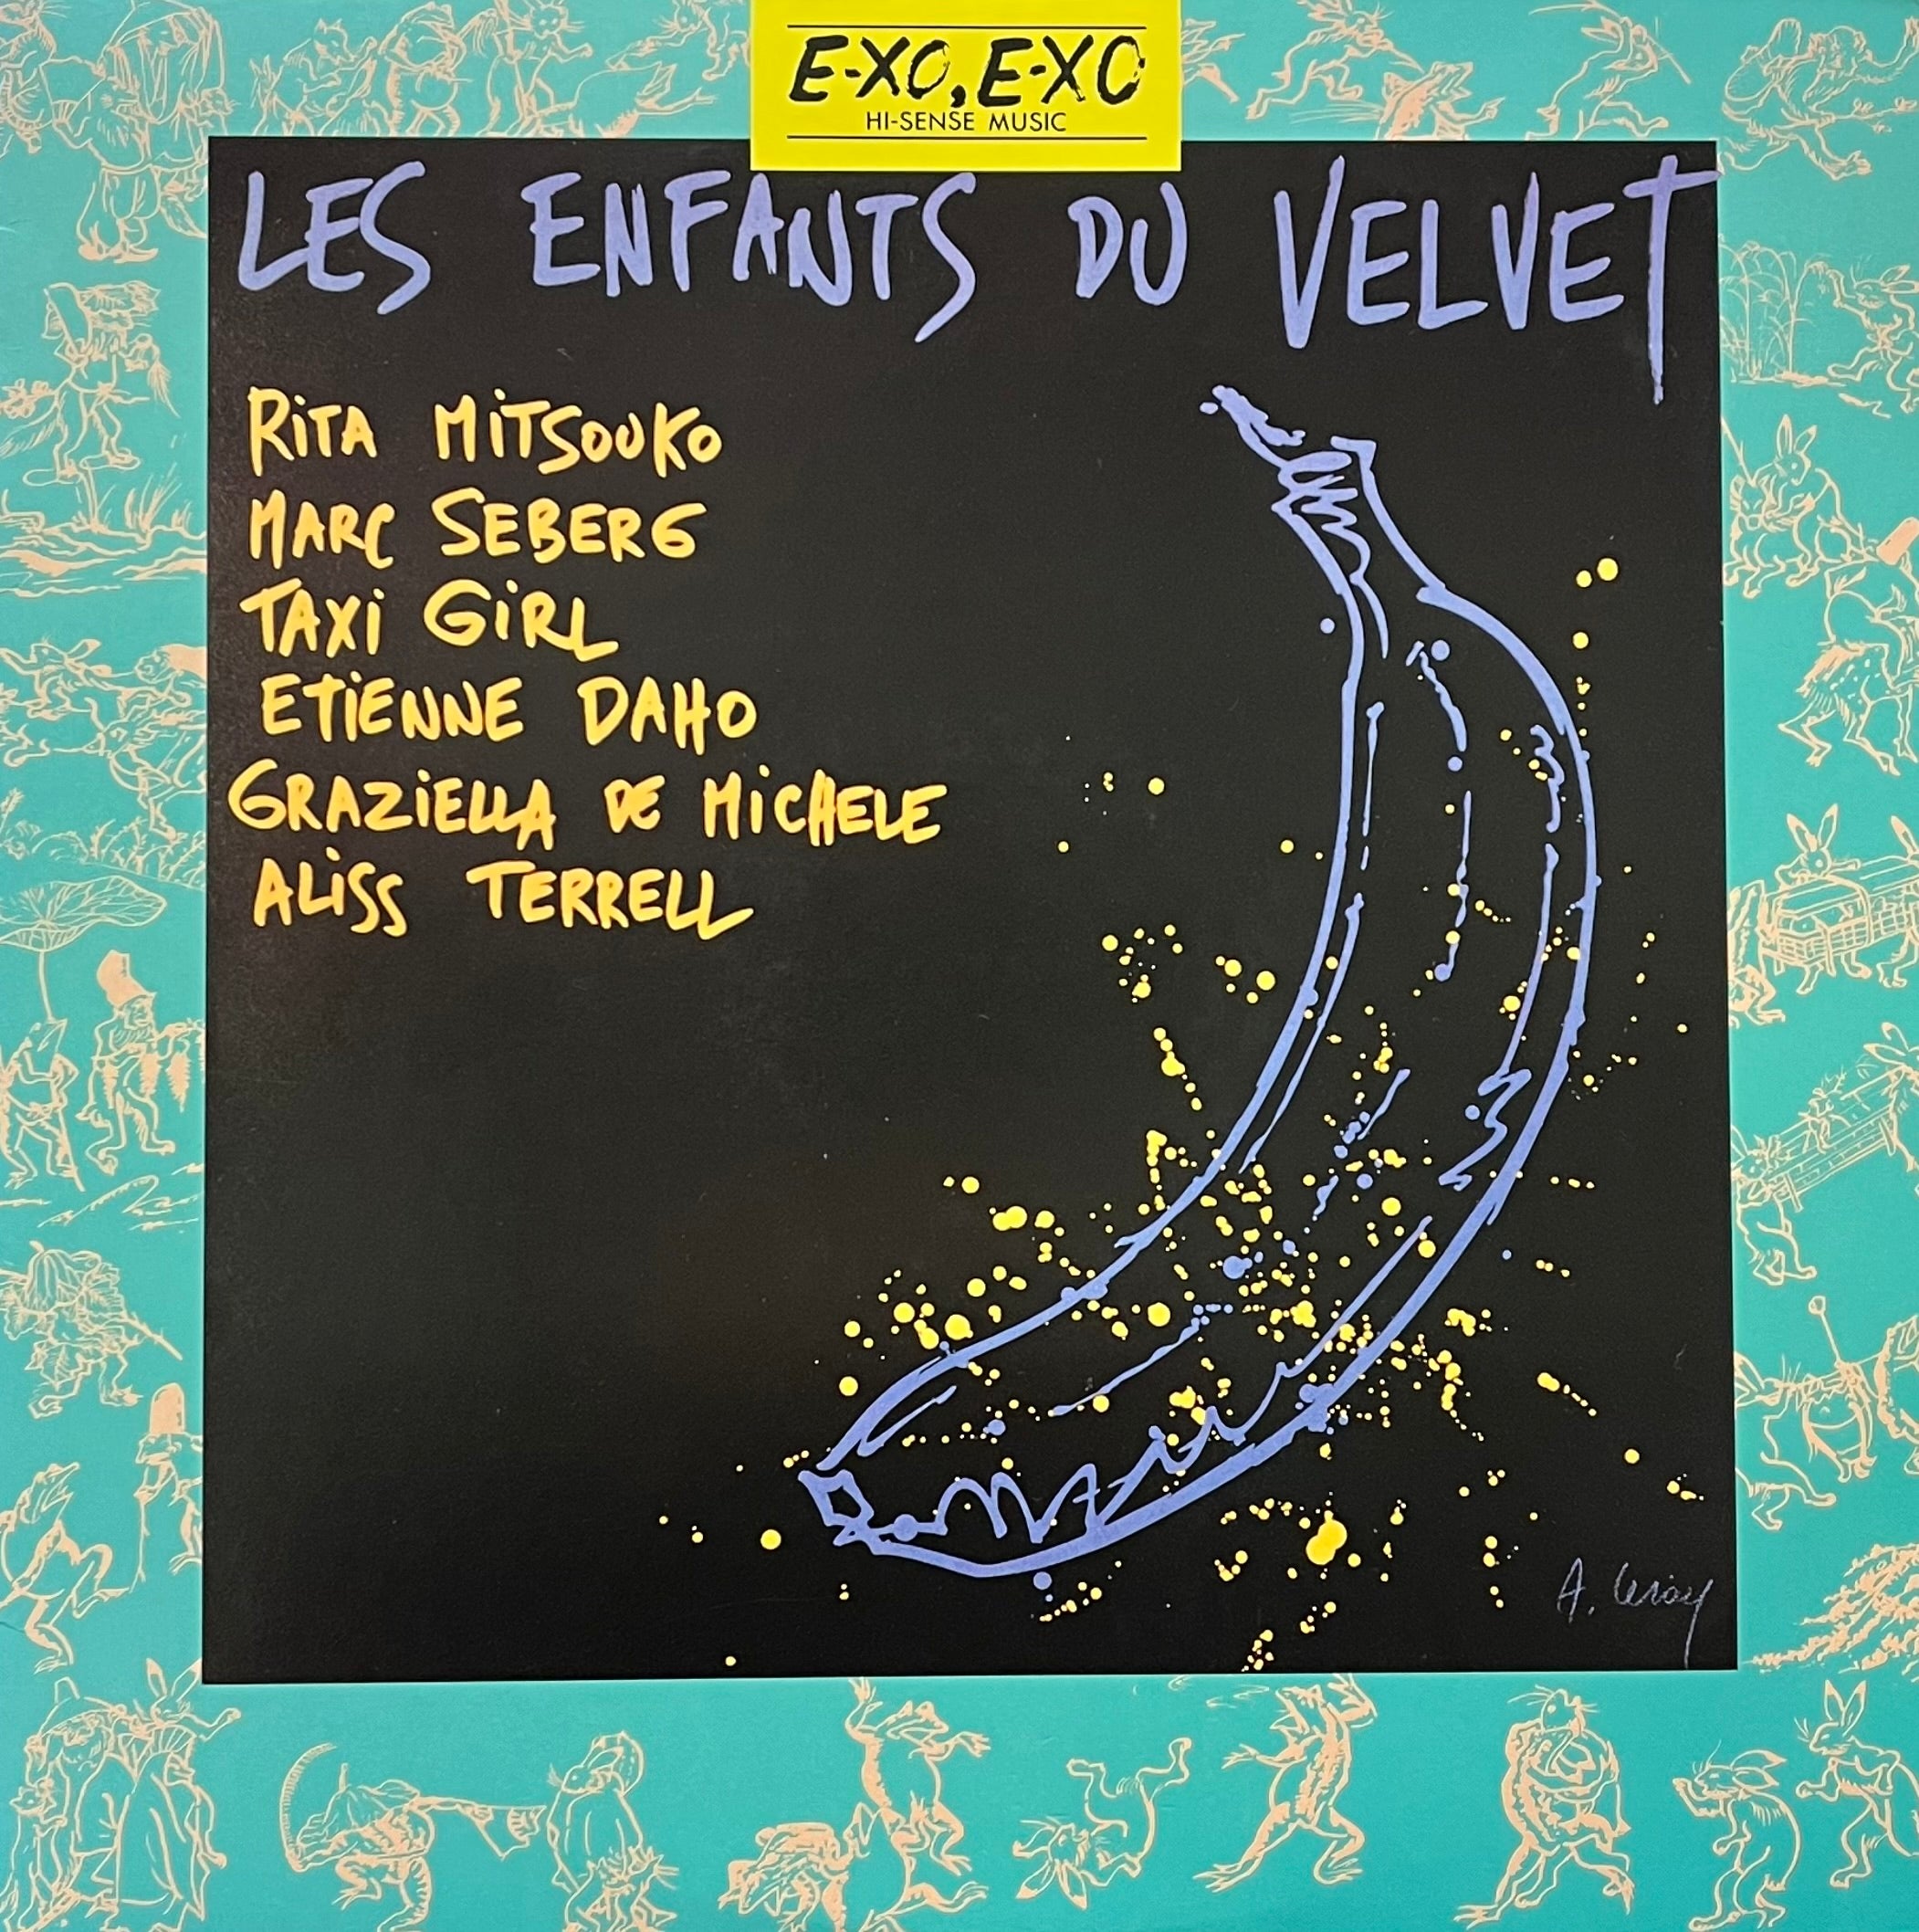 E-XO, E-XO
HI-SENSE MUSIC
LES ENFANTS DU VELVET
RiTA MiTSOUKO
MARC SEBERG
TAXi GiRL
ETiENNE DAHO
GRAZiELLA DE MiCHELE
ALiSS TERRELL
A. Leroy